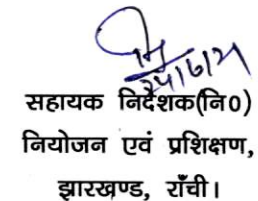 24/6/21
सहायक निर्देशक(नि0)
नियोजन एवं प्रशिक्षण,
झारखण्ड, राँची।